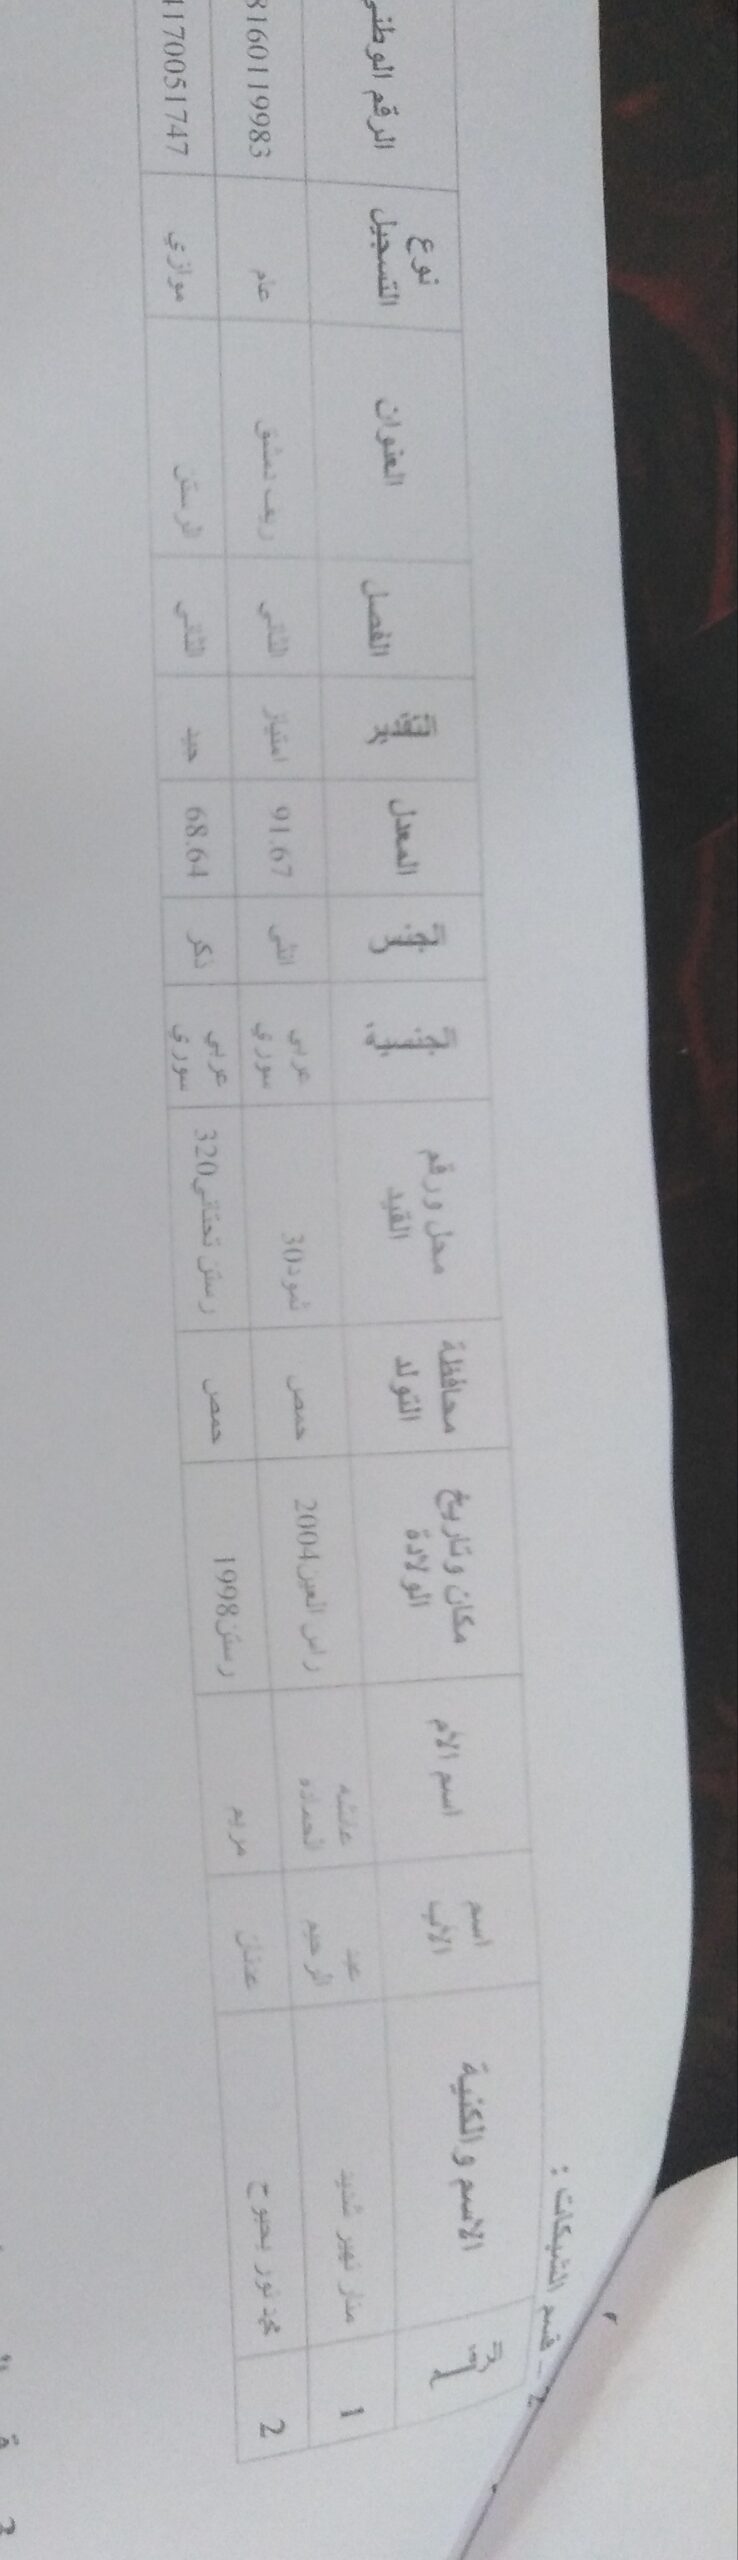 2_ قسم الشبكات :
الرقم الاسم والكنية اسم الأب اسم الأم مكان وتاريخ الولادة محافظة التولد محل ورقم القيد الجنسية الجنس المعدل التقدير الفصل العنوان نوع التسجيل الرقم الوطني
1 منار نهير شديد عبد الرحيم عائشه الحماده راس العين2004 حمص ثمود30 عربي سوري انثى 91.67 امتياز الثاني ريف دمشق عام 8160119983
2 محمد نور بحبوح عدنان مريم رستن1998 حمص رستن تحتاني320 عربي سوري ذكر 68.64 جيد الثاني الرستن موازي 4170051747